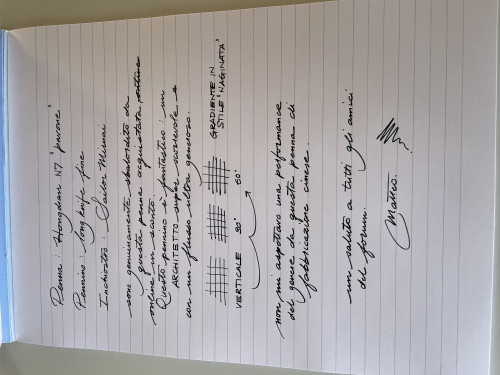 Penna : Hongdian N7 "pavone"
Pennino : long knife fine
Inchiostro : Sailor
sono genuinamente sbalordito da
questa penna acquistata
online in sconto.
Questo pennino è fantastico : un
ARCHITETTO super scorrevole e
con un flusso ultra generoso.
GRADIENTE IN
STILE "NAGINATA"
VERTICALE 30° 60°
non mi aspettavo una performance
del genere da questa penna di
fabbricazione cinese.
un saluto a tutti gli amici
del forum.
Matteo.